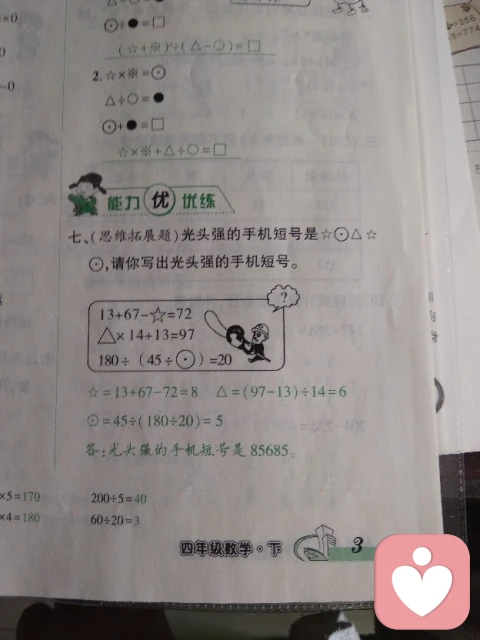 ⊙÷●=□
(☆+※)÷(△-○)=□
2.☆×※=⊙
△÷○=●
⊙+●=□
☆×※+△÷○=□
能力 优 优练
七、(思维拓展题)光头强的手机短号是☆⊙△☆
⊙,请你写出光头强的手机短号。
?
13+67-☆=72
△×14+13=97
180÷(45÷⊙)=20
☆=13+67-72=8 △=(97-13)÷14=6
⊙=45÷(180÷20)=5
答:光头强的手机短号是85685。
×5=170 200÷5=40
×4=180 60÷20=3
四年级数学·下 3